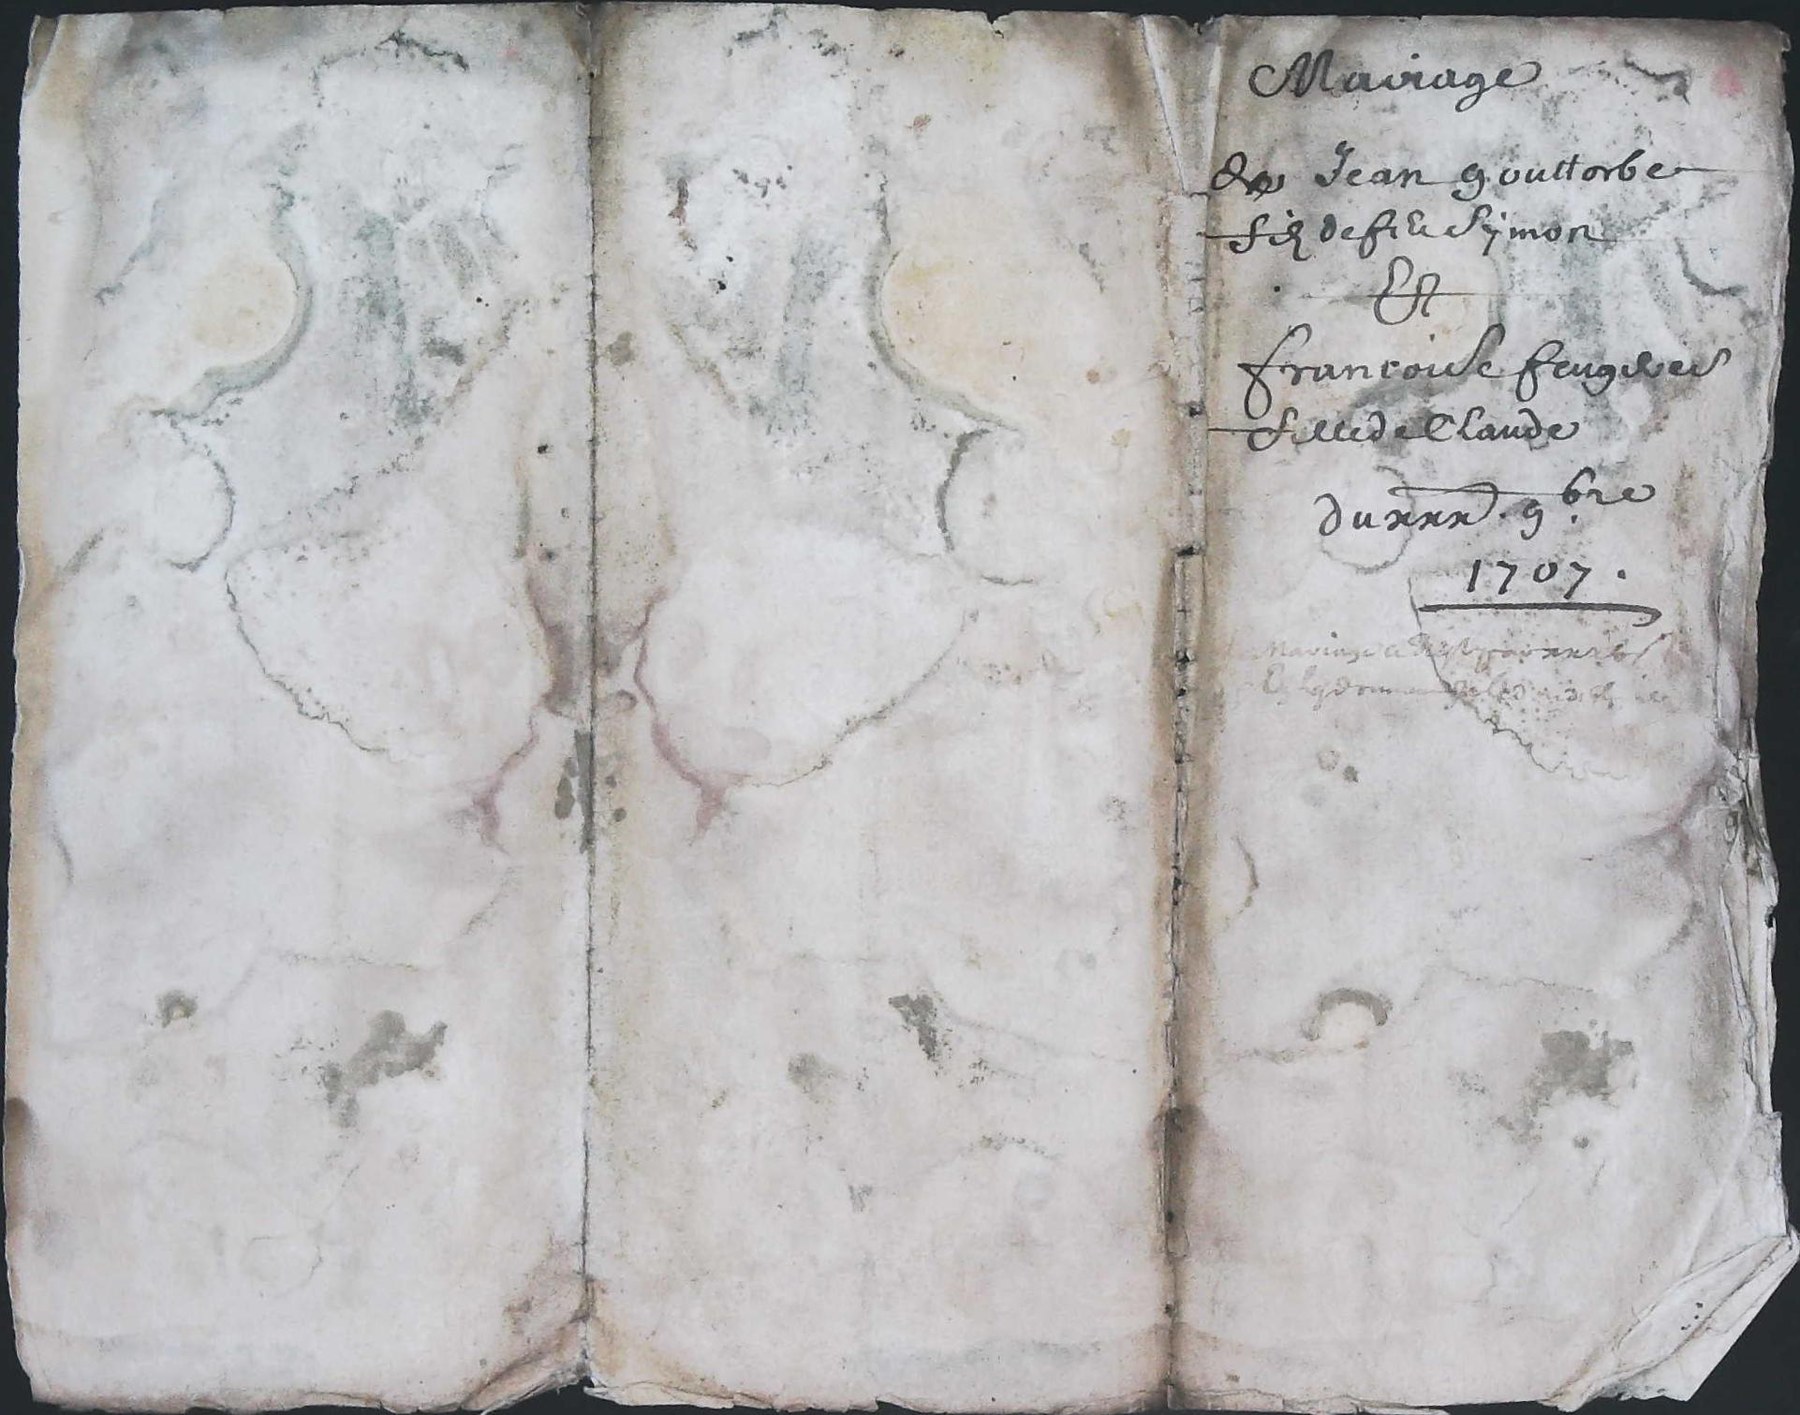 Mariage
De Jean gouttorbe
filz de feu Symon
Et
francoise feugeres
fille de Claude
du xxx. 9.bre
1707.
Mariage